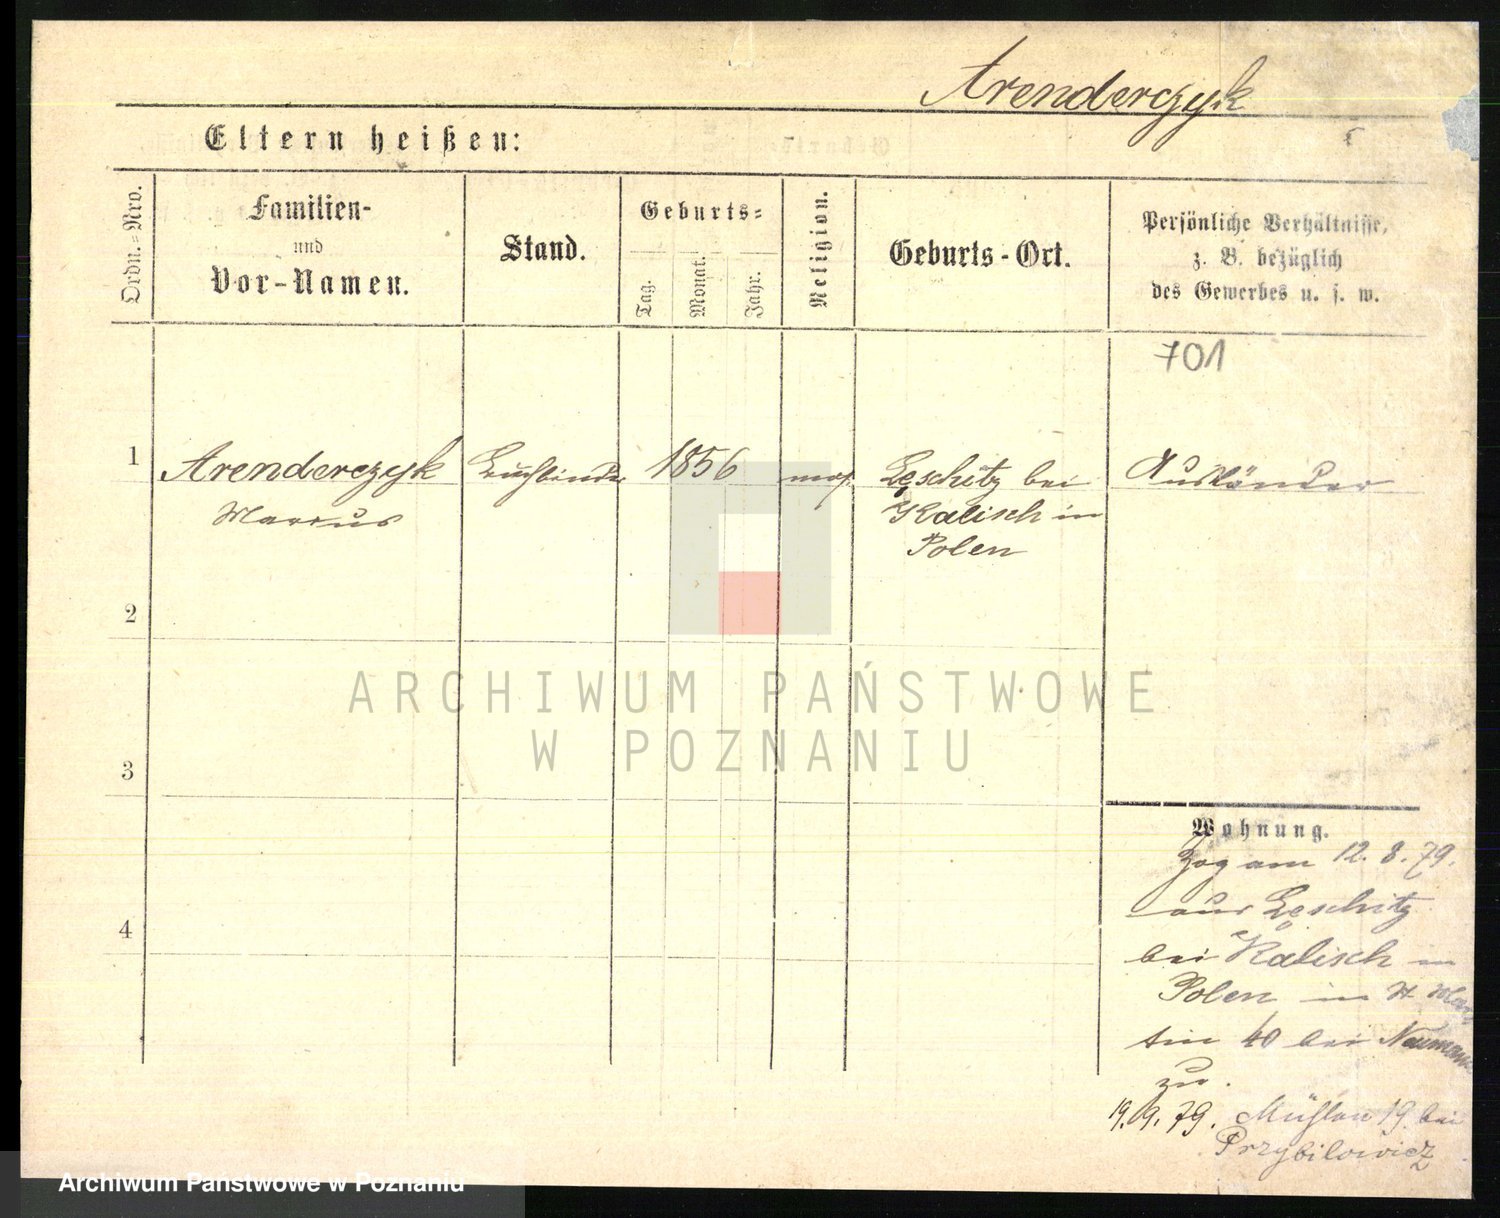 Arenderczyk
Eltern heißen:
Ordn.-Nro.
Familien-
und
Vor-Namen.
Stand.
Geburts-
Tag.
Monat.
Jahr.
Religion.
Geburts-Ort.
Persönliche Verhältnisse,
z. B. bezüglich
des Gewerbes u. s. w.
701
1 Arenderczyk Buchbinder 1856 mos. Leschitz bei Ausländer
Marcus Kalisch in
Polen
2
ARCHIWUM PAŃSTWOWE
W POZNANIU
3
Wohnung.
Zog am 12. 8. 79.
aus Leschitz
4
bei Kalisch in
Polen in St. Mar
tin 40 bei Neumann
zu.
19. 9. 79. Mühlen 19. bei
Przybilowicz
Archiwum Państwowe w Poznaniu